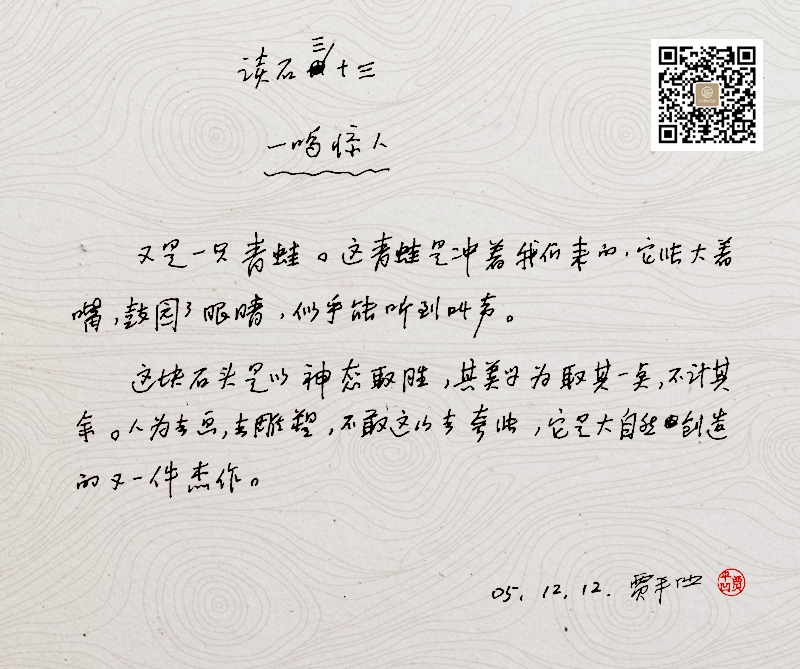 读石三十三
一鸣惊人
又是一只青蛙。这青蛙是冲着我们来的，它张大着
嘴，鼓圆了眼睛，似乎能听到叫声。
这块石头是以神态取胜，其美学为取其一点，不计其
余。人为去画，去雕塑，不敢这么去夸张，它是大自然创造
的又一件杰作。
05.12.12.贾平凹
贾平凹